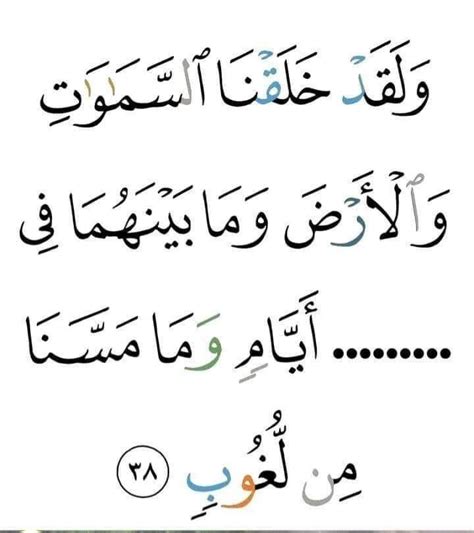 وَلَقَدْ خَلَقْنَا ٱلسَّمَٰوَٰتِ
وَٱلْأَرْضَ وَمَا بَيْنَهُمَا فِى
......... أَيَّامٍ وَمَا مَسَّنَا
مِن لُّغُوبٍ ٣٨